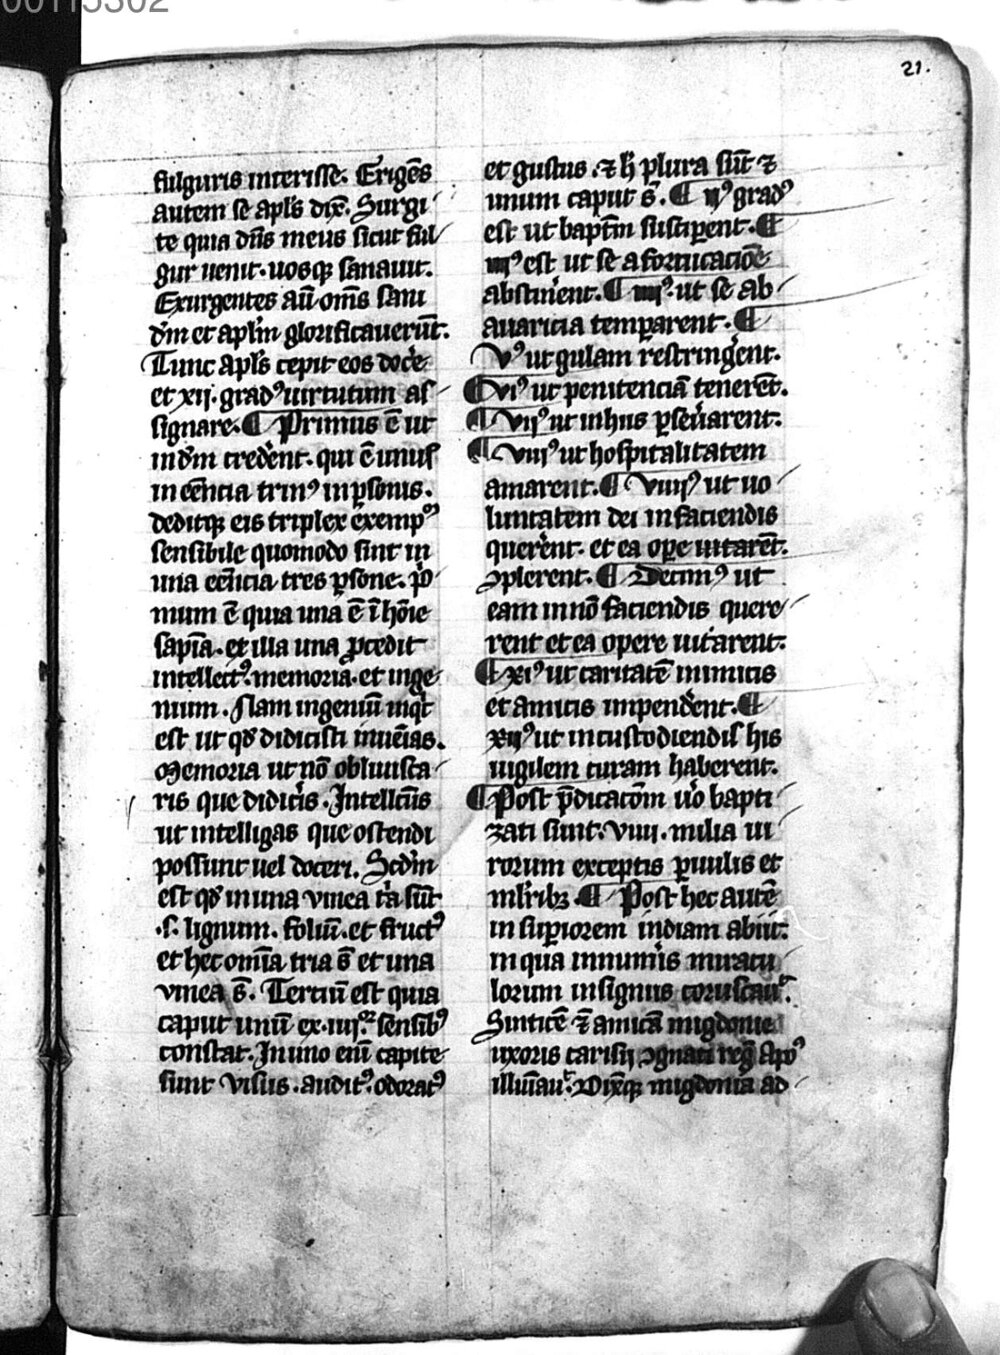 00115302
21.
fulguris interisse. Erigēs
autem se apľs dix̄. Surgi
te quia dn̄s meus sicut ful
gur uenit. uosqꝫ sanauit.
Exurgentes aūt om̄s sani
dm̄ et aplm̄ glorificauerūt.
Tunc apľs cepit eos docē
et xij. gradꝰ uirtutum as
signare. ¶ Primus ē ut
in dm̄ crederēt. qui ē unus
in eēncia trinꝰ in ꝑsonis.
deditqꝫ eis triplex exemp
sensibile quomodo sint in
una eēncia tres ꝑsone. pͥ
mum ē quia una ē ī hōīe
sapīa. et illa una ꝓcedit
intellectꝰ. memoria. et inge
nium. Nam ingeniū inqͥt
est ut qđ didicisti inuēias.
Memoria ut nō obliuisca
ris que didicͥs. Intellcūs
ut intelligas que ostendi
possunt uel doceri. Scd'm
est qđ in una vinea tͥa sūt
.s. lignum. foliū. et fructꝰ
et hec om̄ia tria s̄ et una
vinea s̄. Terciū est quia
caput unū ex .iiijoꝝ sensibꝰ
constat. In uno eni̅ capite
sunt visus. auditꝰ. odoratꝰ
et gustus. ⁊ h̄ plura sūt ⁊
unum caput s̄. ¶ ijꝰ gradꝰ
est ut baptm̄ susciꝑent. ¶
iijꝰ est ut se a fornicacōe
abstinerent. ¶ iiijꝰ. ut se ab
auaricia temꝑarent. ¶
Vꝰ ut gulam restringerent.
¶ viꝰ ut penitenciā tenerēt.
¶ vijꝰ ut in hiis ꝑseuarent.
¶ viijꝰ ut hospitalitatem
amarent. ¶ viiijꝰ ut uo
luntatem dei in faciendis
quererent. et ea oꝑe uitarēt.
ꝯplerent. ¶ Decimꝰ ut
eam in nō faciendis quere
rent et ea opere uitarent.
¶ xiꝰ ut caritatē inimicis
et amicis impenderent. ¶
xijꝰ ut in custodiendis his
uigilem curam haberent.
¶ Post p̄dicacōm ūo bapti
zati sunt. viiij. milia ui
rorum exceptis ꝑuulis et
ml̄ribꝫ. ¶ Post hec autē
in suꝑiorem indiam abiit.
in qua innumͥs miracu
lorum insigniis coruscauͭ.
Sinticē ⁊ amicā migdonie
uxoris carisij ꝯgnati regͥ apꝰ
illuīauͭ. Dix̄qꝫ migdonia ad